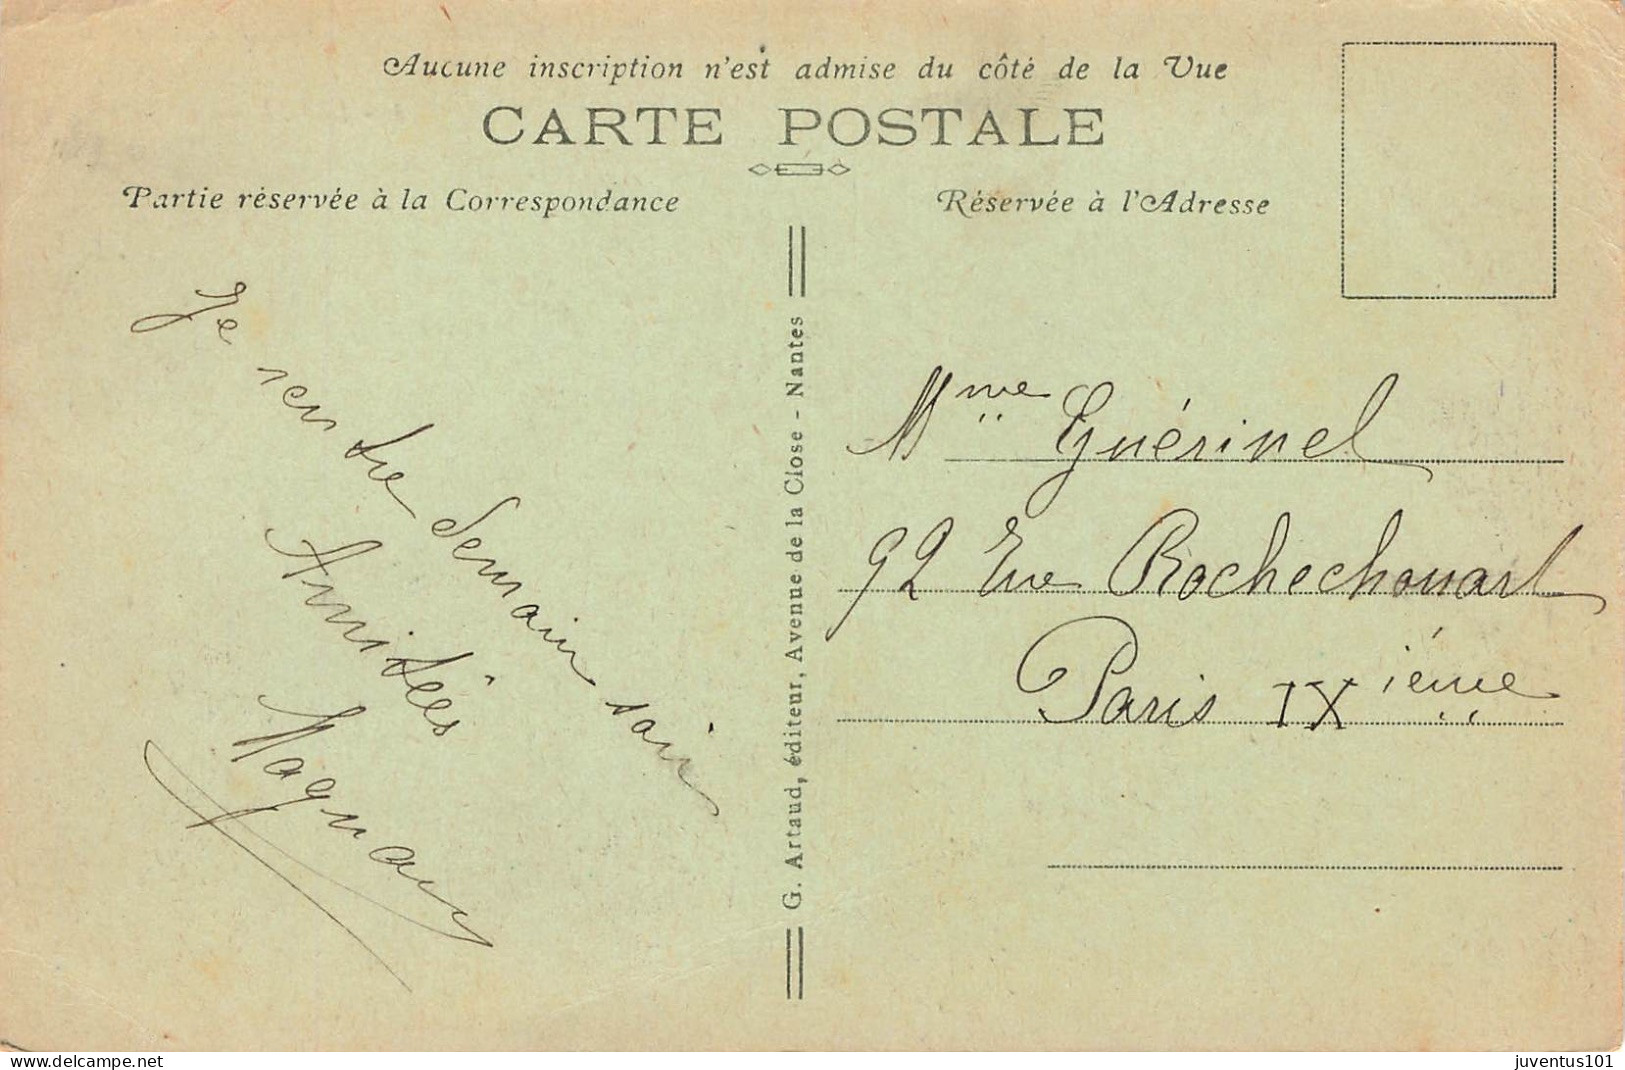 Aucune inscription n'est admise du côté de la Vue
CARTE POSTALE
Partie réservée à la Correspondance
Réservée à l'Adresse
Je rentre demain soir
Amitiés
G. Artaud, éditeur, Avenue de la Close - Nantes
Mme Guérinel
92 rue Rochechouart
Paris IXième
www.delcampe.net
juventus101